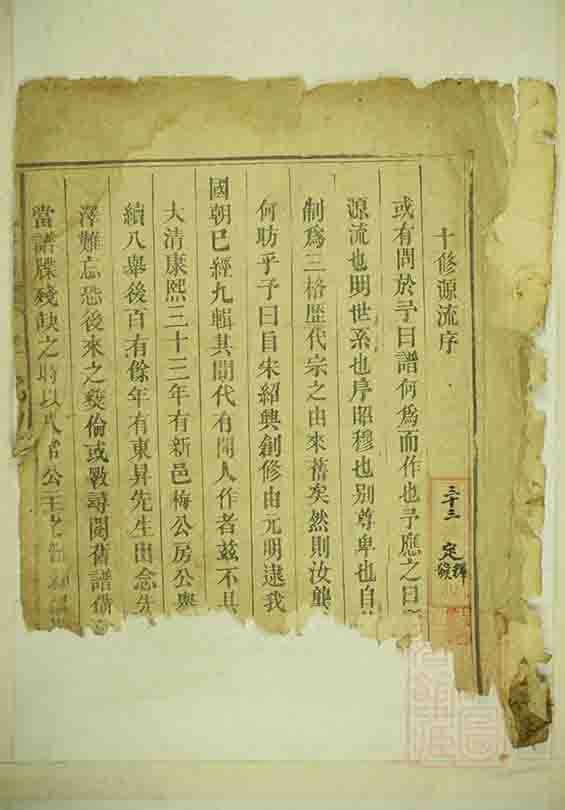 十修源流序
或有問於予曰譜何爲而作也予應之曰
源流也明世系也序昭穆也别尊卑也自
制爲三格歷代宗之由來舊矣然則汝龔
何昉乎予曰自宋紹興創修由元明逮我
國朝已經九輯其間代有聞人作者茲不具
大清康熙三十三年有新邑梅公房公與
續八舉後百有餘年有東昇先生由念先
澤難忘恐後來之彝倫或斁尋閱舊譜備
當譜牒殘缺之時以
三十三
定